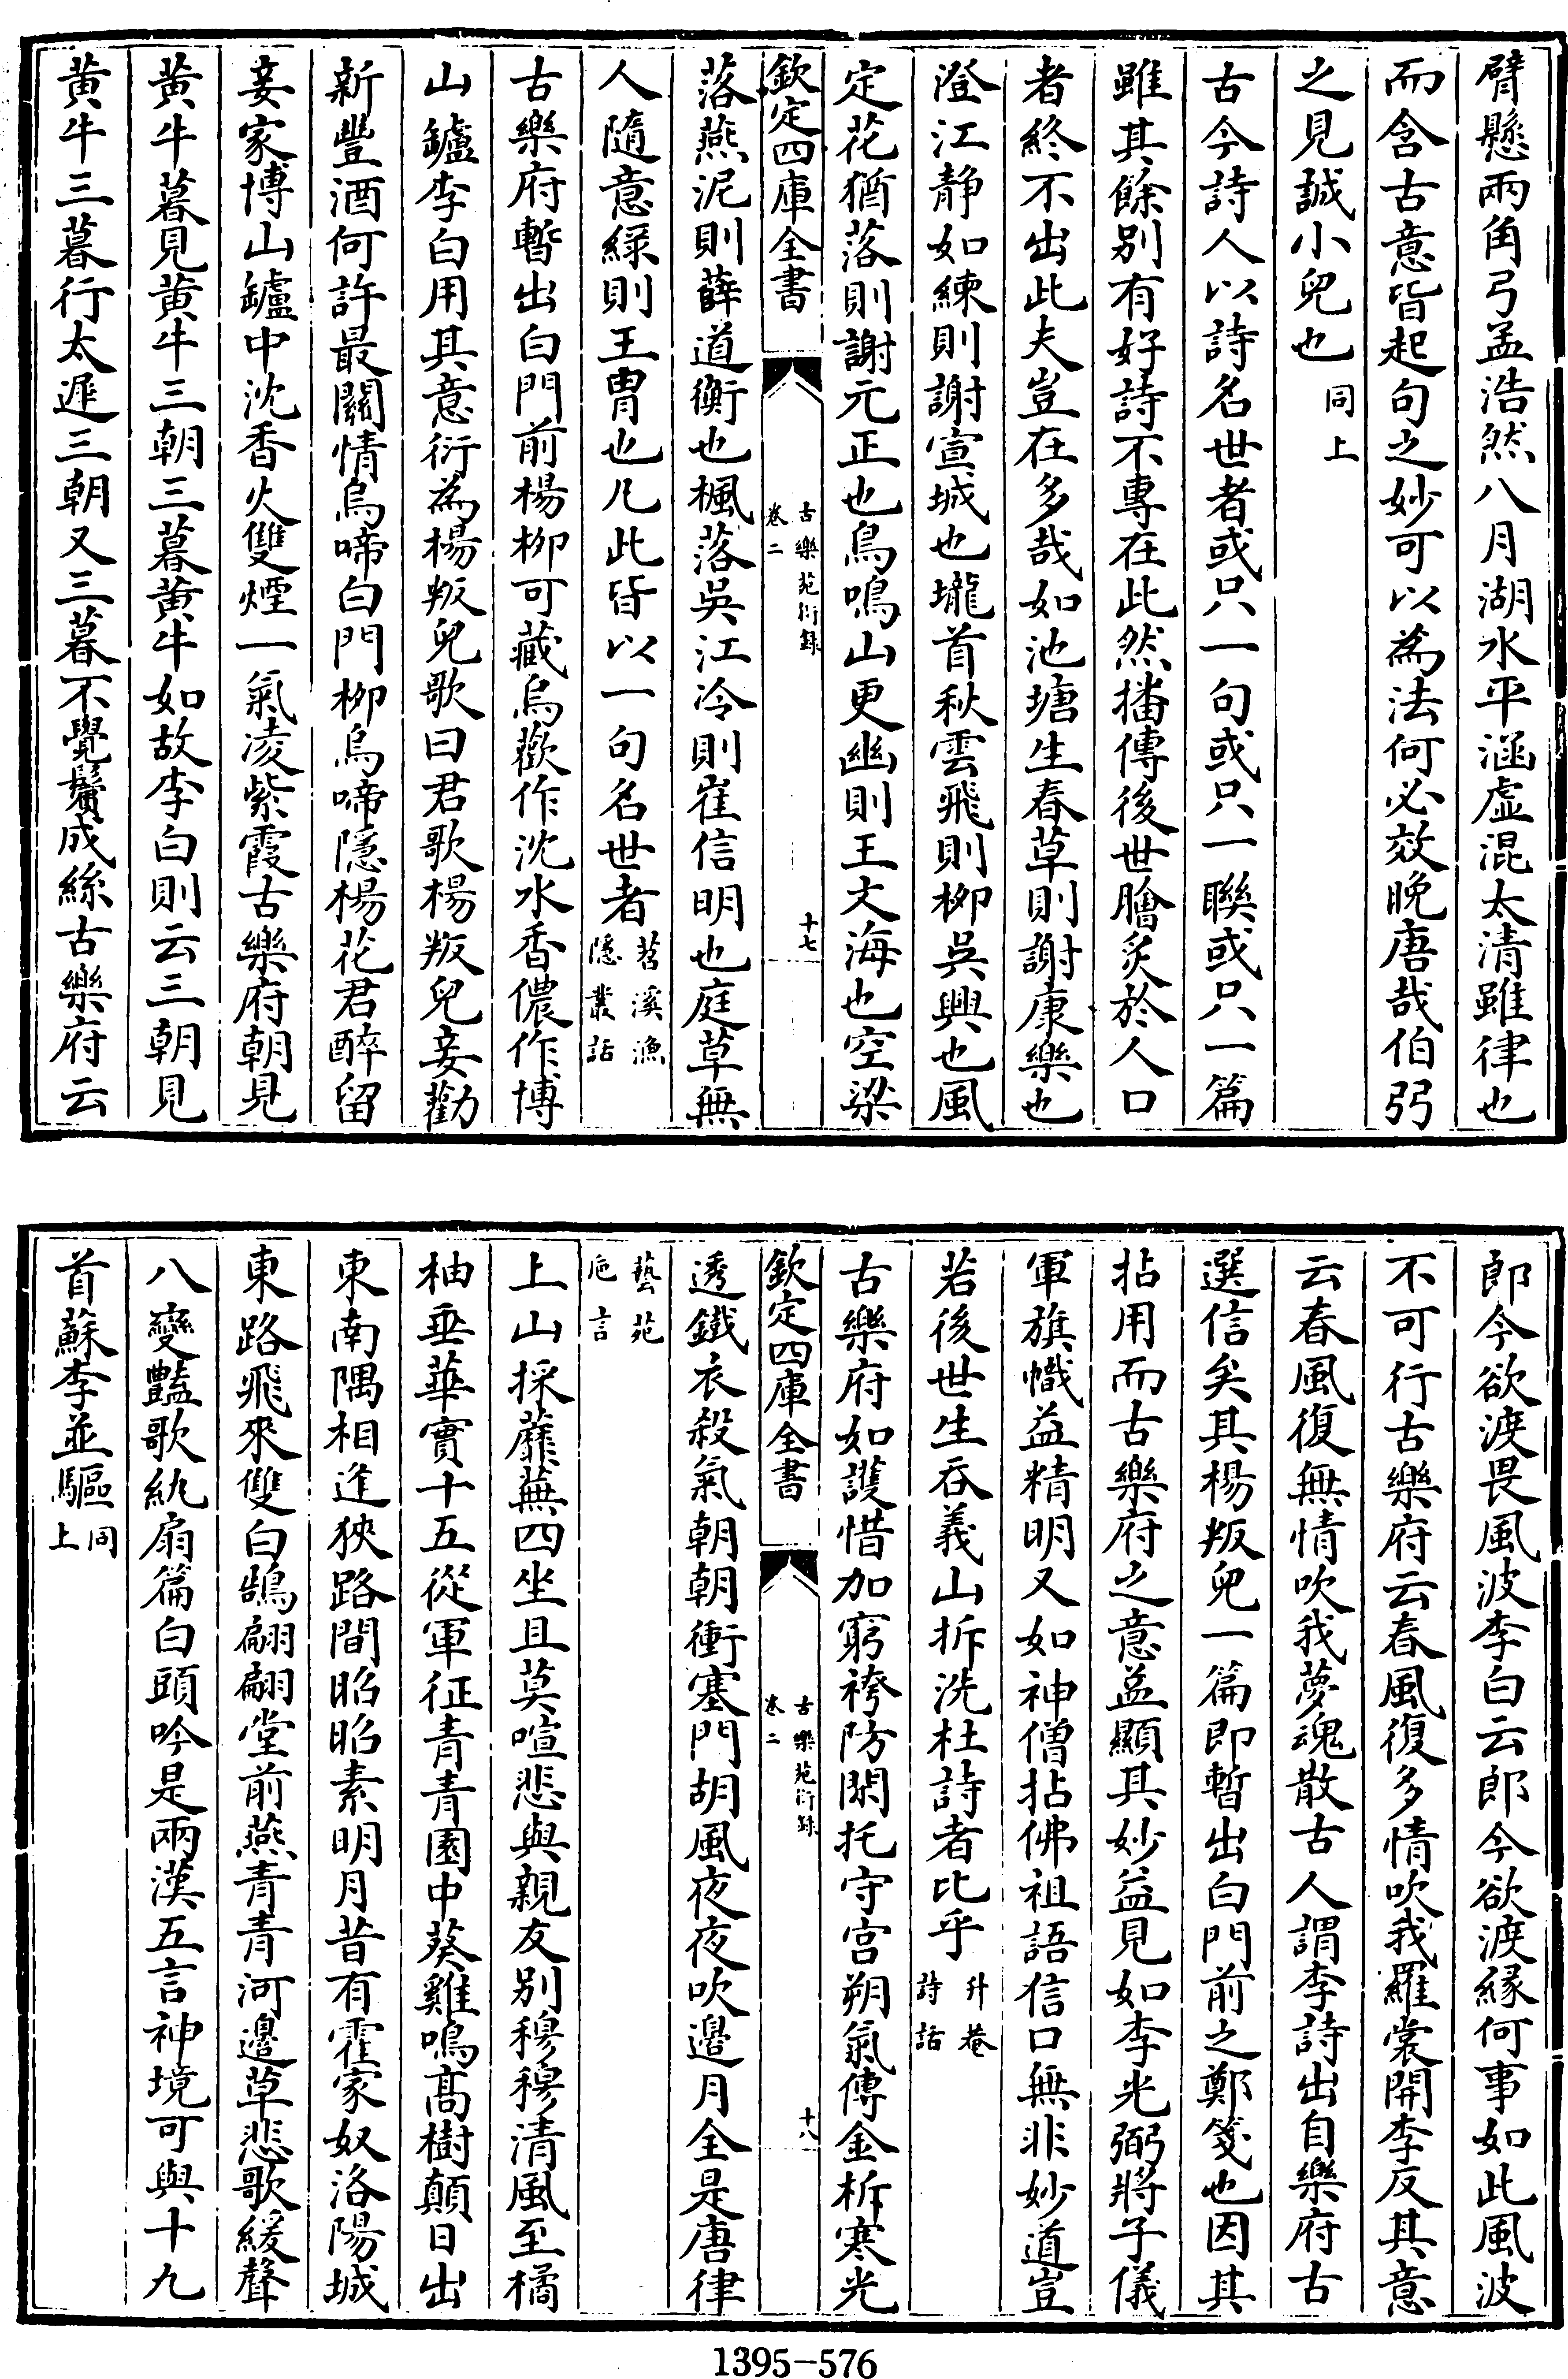 臂懸兩角弓孟浩然八月湖水平涵虛混太清雖律也
而含古意皆起句之妙可以為法何必效晚唐哉伯弜
之見誠小兒也同上
古今詩人以詩名世者或只一句或只一聯或只一篇
雖其餘別有好詩不專在此然播傳後世膾炙於人口
者終不出此夫豈在多哉如池塘生春草則謝康樂也
澄江静如練則謝宣城也壠首秋雲飛則栁吳興也風
定花猶落則謝元正也鳥鳴山更幽則王文海也空梁
欽定四庫全書
古樂苑衍録
卷二
十七
落燕泥則薛道衡也楓落吳江冷則崔信明也庭草無
人隨意緑則王胄也凡此皆以一句名世者苕溪漁
隱叢話
古樂府暫出白門前楊栁可藏烏歡作沈水香儂作博
山鑪李白用其意衍為楊叛兒歌曰君歌楊叛兒妾勸
新豐酒何許最關情烏啼白門栁烏啼隱楊花君醉留
妾家博山鑪中沈香火雙煙一氣凌紫霞古樂府朝見
黄牛暮見黄牛三朝三暮黄牛如故李白則云三朝見
黄牛三暮行太遲三朝又三暮不覺鬢成絲古樂府云
郎今欲渡畏風波李白云郎今欲渡緣何事如此風波
不可行古樂府云春風復多情吹我羅裳開李反其意
云春風復無情吹我夢魂散古人謂李詩出自樂府古
選信矣其楊叛兒一篇即暫出白門前之鄭箋也因其
拈用而古樂府之意益顯其妙益見如李光弼將子儀
軍旗幟益精明又如神僧拈佛祖語信口無非妙道豈
若後世生吞義山拆洗杜詩者比乎升菴
詩話
古樂府如護惜加窮袴防閑托守宫朔氣傳金柝寒光
欽定四庫全書
古樂苑衍録
卷二
十八
透鐵衣殺氣朝朝衝塞門胡風夜夜吹邉月全是唐律
藝苑
巵言
上山採蘼蕪四坐且莫喧悲與親友别穆穆清風至橘
柚垂華實十五從軍征青青園中葵雞鳴髙樹顛日出
東南隅相逢狹路間昭昭素明月昔有霍家奴洛陽城
東路飛來雙白鵠翩翩堂前燕青青河邉草悲歌緩聲
八變豔歌紈扇篇白頭吟是兩漢五言神境可與十九
首蘇李並驅同
上
1395-576